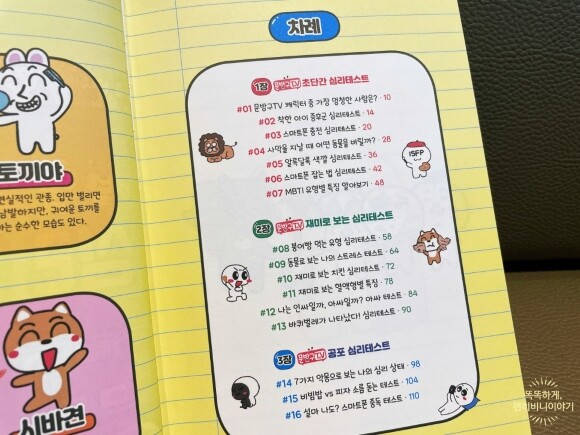 토끼야
현실적인 관종. 입만 벌리면
남발하지만, 귀여운 토끼를
하는 순수한 모습도 있다.
시바견
차례
1장 문방구TV 초단간 심리테스트
#01 문방구TV 캐릭터 중 가장 멍청한 사람은? · 10
#02 착한 아이 증후군 심리테스트 · 14
#03 스마트폰 충전 심리테스트 · 20
#04 사막을 지날 때 어떤 동물을 버릴까? · 28
#05 알록달록 색깔 심리테스트 · 36
#06 스마트폰 잡는 법 심리테스트 · 42
#07 MBTI 유형별 특징 알아보기 · 48
ISFP
2장 문방구TV 재미로 보는 심리테스트
#08 붕어빵 먹는 유형 심리테스트 · 58
#09 동물로 보는 나의 스트레스 테스트 · 64
#10 재미로 보는 치킨 심리테스트 · 72
#11 재미로 보는 혈액형별 특징 · 78
#12 나는 인싸일까, 아싸일까? 아싸 테스트 · 84
#13 바퀴벌레가 나타났다! 심리테스트 · 90
3장 문방구TV 공포 심리테스트
#14 7가지 악몽으로 보는 나의 심리 상태 · 98
#15 비빔밥 vs 피자 소름 돋는 테스트 · 104
#16 설마 나도? 스마트폰 중독 테스트 · 110
똑똑하게,